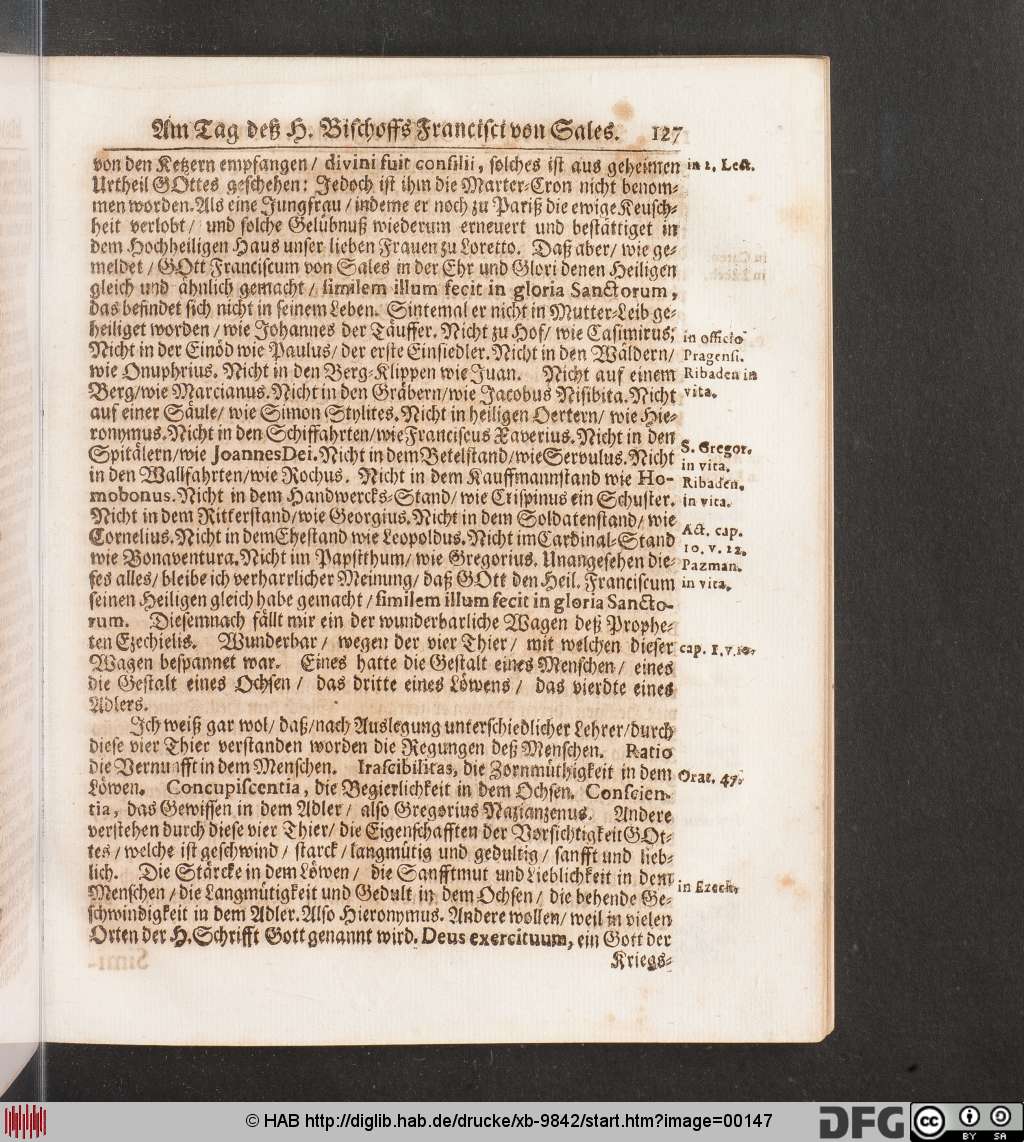 Am Tag deß H. Bischoffs Francisci von Sales. 127
von den Ketzern empfangen / divini fuit consilii, solches ist aus geheimen in 2. Lect.
Urtheil GOttes geschehen: Jedoch ist ihm die Marter-Cron nicht benom-
men worden. Als eine Jungfrau / indeme er noch zu Pariß die ewige Keusch-
heit verlobt / und solche Gelübnuß wiederum erneuert und bestättiget in
dem Hochheiligen Haus unser lieben Frauen zu Loretto. Daß aber / wie ge-
meldet / GOtt Franciscum von Sales in der Ehr und Glori denen Heiligen
gleich und ähnlich gemacht / similem illum fecit in gloria Sanctorum,
das befindet sich nicht in seinem Leben. Sintemal er nicht in Mutter-Leib ge-
heiliget worden / wie Johannes der Täuffer. Nicht zu Hof / wie Casimirus. in officio
Nicht in der Einöd wie Paulus / der erste Einsiedler. Nicht in den Wäldern / Pragensi.
wie Onuphrius. Nicht in den Berg-Klippen wie Juan. Nicht auf einem Ribaden in
Berg / wie Marcianus. Nicht in den Gräbern / wie Jacobus Nisibita. Nicht vita.
auf einer Säule / wie Simon Stylites. Nicht in heiligen Oertern / wie Hie-
ronymus. Nicht in den Schiffahrten / wie Franciscus Xaverius. Nicht in den
Spitälern / wie Joannes Dei. Nicht in dem Betelstand / wie Servulus. Nicht S. Gregor.
in den Wallfahrten / wie Rochus. Nicht in dem Kauffmannstand wie Ho- in vita.
mobonus. Nicht in dem Handwercks-Stand / wie Crispinus ein Schuster. Ribaden. in vita.
Nicht in dem Ritterstand / wie Georgius. Nicht in dem Soldatenstand / wie
Cornelius. Nicht in dem Ehestand wie Leopoldus. Nicht im Cardinal-Stand Act. cap.
wie Bonaventura. Nicht im Papstthum / wie Gregorius. Unangesehen die- 10. v. 12. Pazman.
ses alles / bleibe ich verharrlicher Meinung / daß GOtt den Heil. Franciscum in vita.
seinen Heiligen gleich habe gemacht / similem illum fecit in gloria Sancto-
rum. Diesemnach fällt mir ein der wunderbarliche Wagen deß Prophe-
ten Ezechielis. Wunderbar / wegen der vier Thier / mit welchen dieser cap. 1. v. 10.
Wagen bespannet war. Eines hatte die Gestalt eines Menschen / eines
die Gestalt eines Ochsen / das dritte eines Löwens / das vierdte eines
Adlers.
Ich weiß gar wol / daß / nach Auslegung unterschiedlicher Lehrer / durch
diese vier Thier verstanden worden die Regungen deß Menschen. Ratio
die Vernunfft in dem Menschen. Irascibilitas, die Zornmüthigkeit in dem Orat. 47.
Löwen. Concupiscentia, die Begierlichkeit in dem Ochsen. Conscien-
tia, das Gewissen in dem Adler / also Gregorius Nazianzenus. Andere
verstehen durch diese vier Thier / die Eigenschafften der Vorsichtigkeit GOt-
tes / welche ist geschwind / starck / langmütig und gedultig / sanfft und lieb-
lich. Die Stärcke in dem Löwen / die Sanfftmut und Lieblichkeit in dem
Menschen / die Langmütigkeit und Gedult in dem Ochsen / die behende Ge- in Ezech.
schwindigkeit in dem Adler. Also Hieronymus. Andere wollen / weil in vielen
Orten der H. Schrifft Gott genannt wird. Deus exercituum, ein Gott der
Kriegs-
© HAB http://diglib.hab.de/drucke/xb-9842/start.htm?image=00147
DFG
CC BY SA